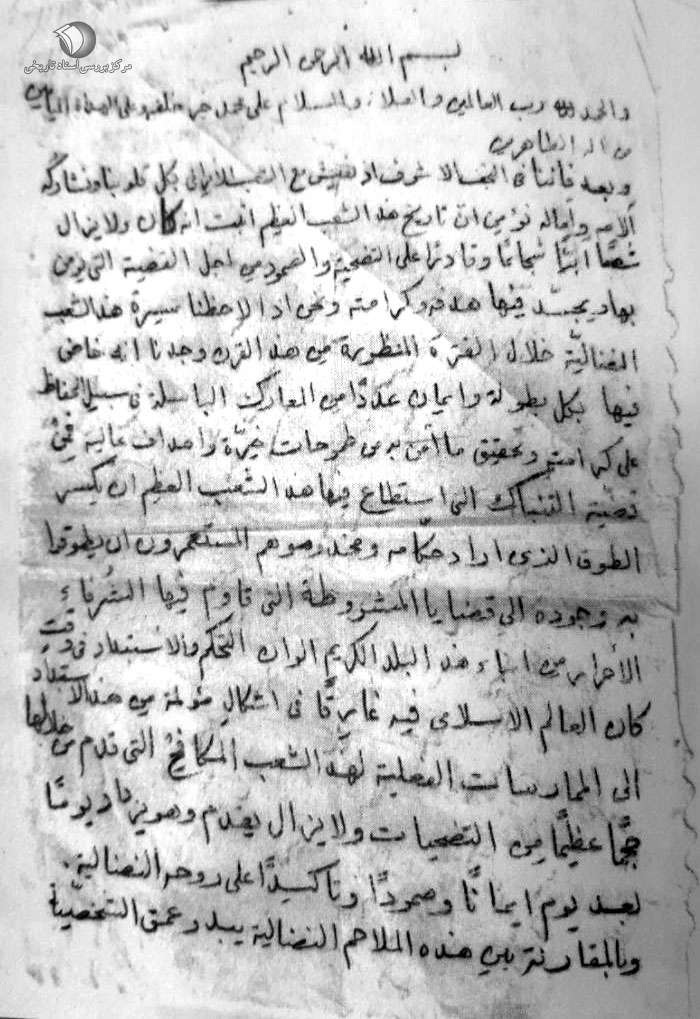 مرکز بررسی اسناد تاریخی
بسم الله الرحمن الرحيم
والحمد لله رب العالمين والصلاة والسلام على محمد خير خلقه وعلى الهداة الميامين
من آله الطاهرين
وبعد فاننا في النجف الاشرف اذ نعيش مع الشعب الايراني بكل قلوبنا ونشاركه
آلامه وآماله نؤمن ان تاريخ هذا الشعب العظيم اثبت انه كان ولا يزال
شعبًا ابيًا شجاعًا وقادرًا على التضحية والصمود من اجل القضية التي يؤمن
بها ويجسد فيها هدفه وكرامته ونحن اذا لاحظنا سيرة هذا الشعب
النضاليّة خلال الفترة المنظورة من هذا القرن وجدنا انه خاض
فيها بكل بطولة وايمان عددًا من المعارك الباسلة في سبيل الحفاظ
على كرامته وتحقيق ما آمن به من طموحات خيّرة واهداف عالية فمن
قضيّة التنباك التي استطاع فيها هذا الشعب العظيم ان يكسر
الطوق الذي اراد حكّامه ومخدوموهم المستعمرون ان يطوقوا
به وجوده الى قضايا المشروطة التي قاوم فيها الشرفاء
الأحرار من ابناء هذا البلد الكريم الوان التحكم والاستبداد في وقت
كان العالم الاسلامي فيه غارقًا في اشكال مؤلمة من هذا الاستبداد
الى الممارسات الفعلية لهذا الشعب المكافح التي قدم من خلالها
حجمًا عظيمًا من التضحيات ولا يزال يقدم وهو يزداد يومًا
بعد يوم ايمانًا وصمودًا وتاكيدًا على روحه النضالية.
وبالمقارنة بين هذه الملاحم النضالية يبدو عمق الشخصيّة